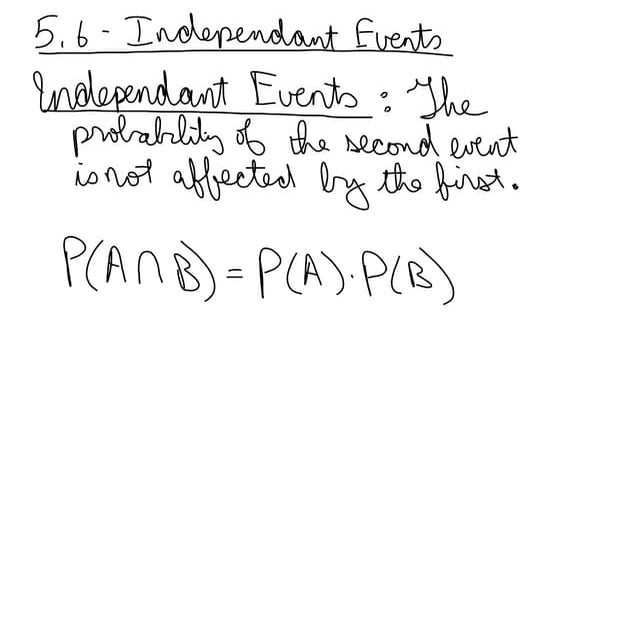 5.6 - Independant Events
Independant Events : The
probability of the second event
is not affected by the first.
P(A∩B) = P(A)·P(B)